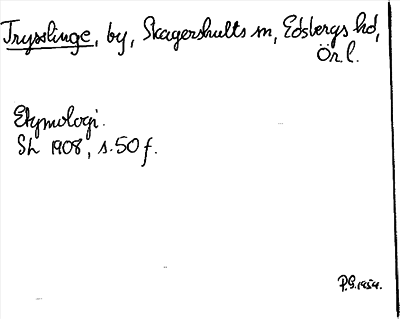 Trysslinge, by, Skagershults sn, Edsbergs hd,
Ör. l.
Etymologi.
SL 1908, s. 50 f.
P.G. 1954.